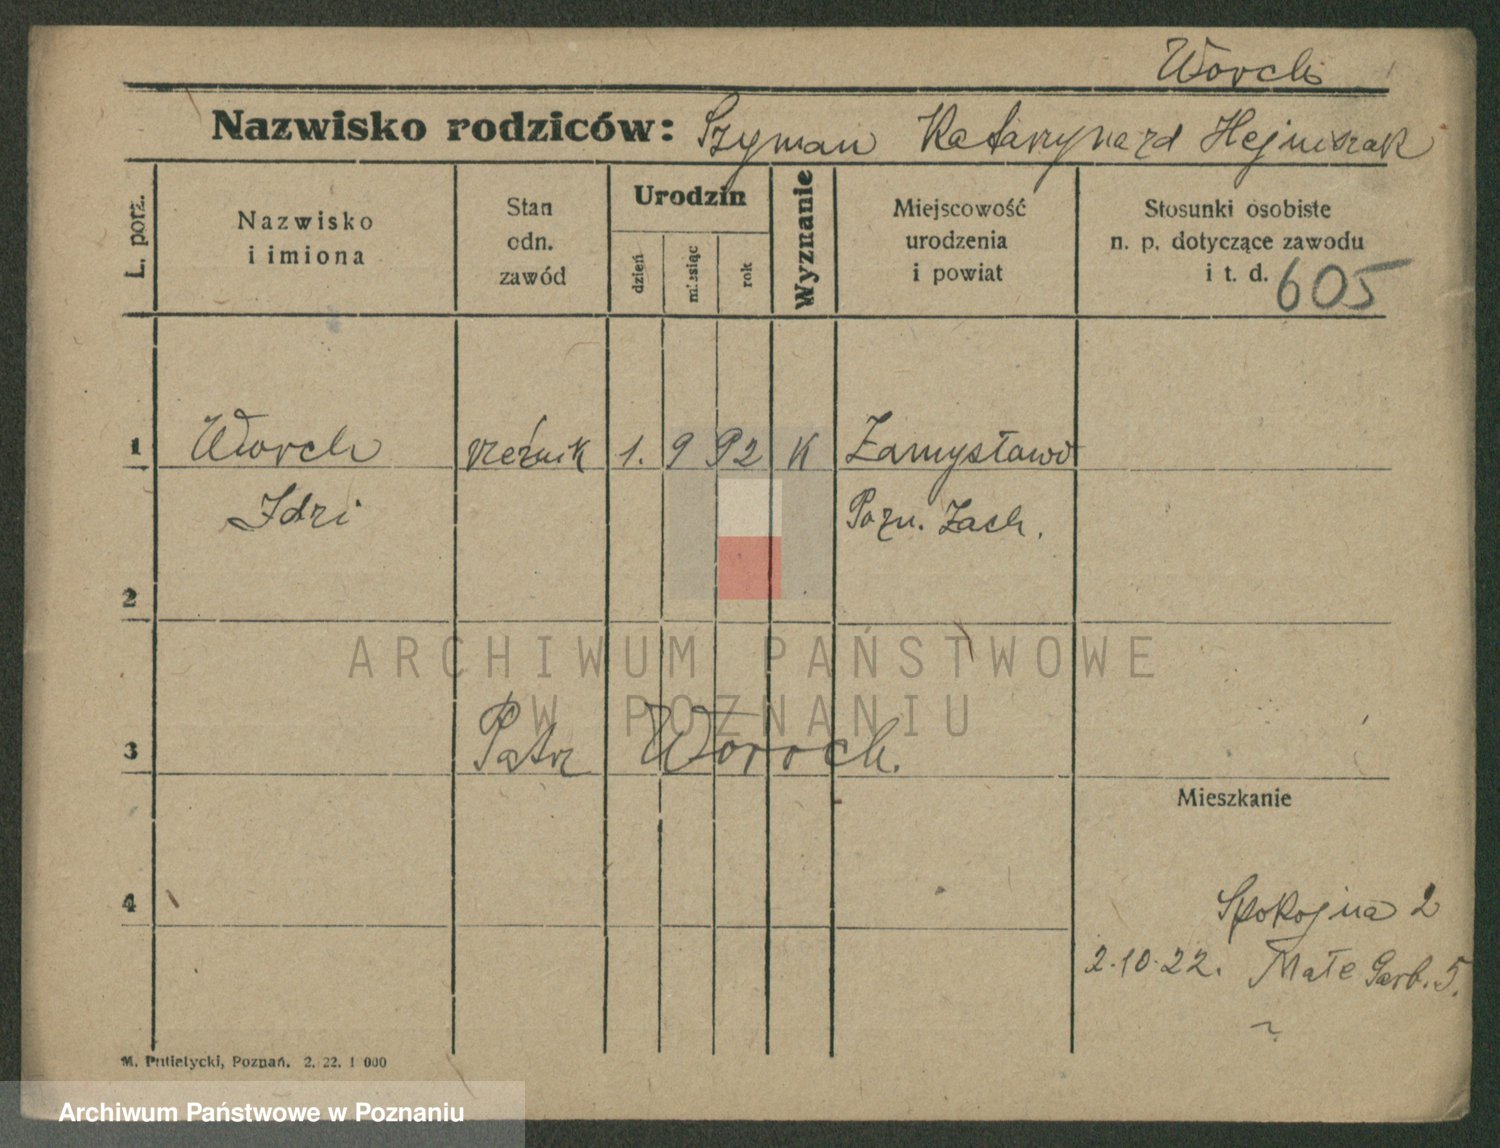 Worch
Nazwisko rodziców: Szyman Katarzyna zd Hejniszak
L. porz.
Nazwisko
i imiona
Stan
odn.
zawód
Urodzin
dzień
miesiąc
rok
Wyznanie
Miejscowość
urodzenia
i powiat
Stosunki osobiste
n. p. dotyczące zawodu
i t. d. 605
1 Worch rzeźnik 1. 9 92 K Zamysłowo
Idzi Pozn. Zach.
2
ARCHIWUM PAŃSTWOWE
W POZNANIU
3 Patrz Woroch.
Mieszkanie
4 Spokojna 2
2.10.22. Małe Garb. 5.
M. Putiatycki, Poznań. 2. 22. 1 000
Archiwum Państwowe w Poznaniu